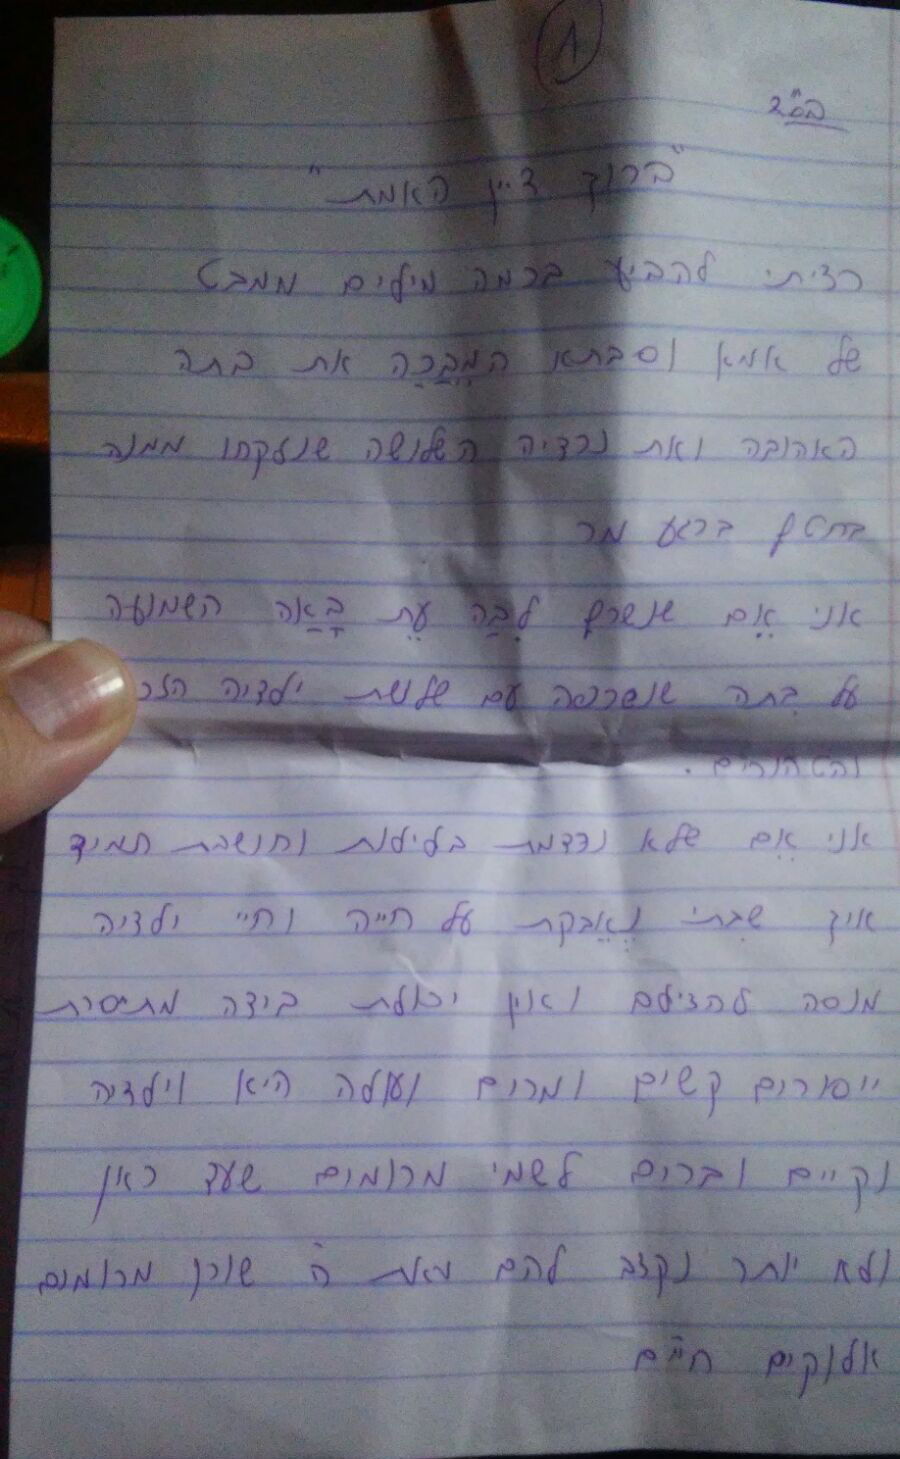 1
בס"ד
"ברוך דיין האמת"
רציתי להביע בכמה מילים ממבט
של אמא וסבתא המְבַכָּה את בתה
האהובה ואת נכדיה השלושה שנלקחו ממנה
בחטף ברגע מר
אני אֵם שנשרף לִבָּה עֵת בָּאָה השמועה
על בִּתה שנשרפה עם שלושת ילדיה
והטהורים.
אני אֵם שלא נרדמת בלילות וחושבת תמיד
איך שבִתי נֶאֱבקת על חייה וחיי ילדיה
מנסה להצילם ואין יכולת בידה מתיסרת
ייסורים קשים ומרים ועולה היא וילדיה
נקיים וברים לשמי מרומים שעד כאן
ולא יותר נקצב להם מאת ה' שוכן מרומים
אלוקים חיים